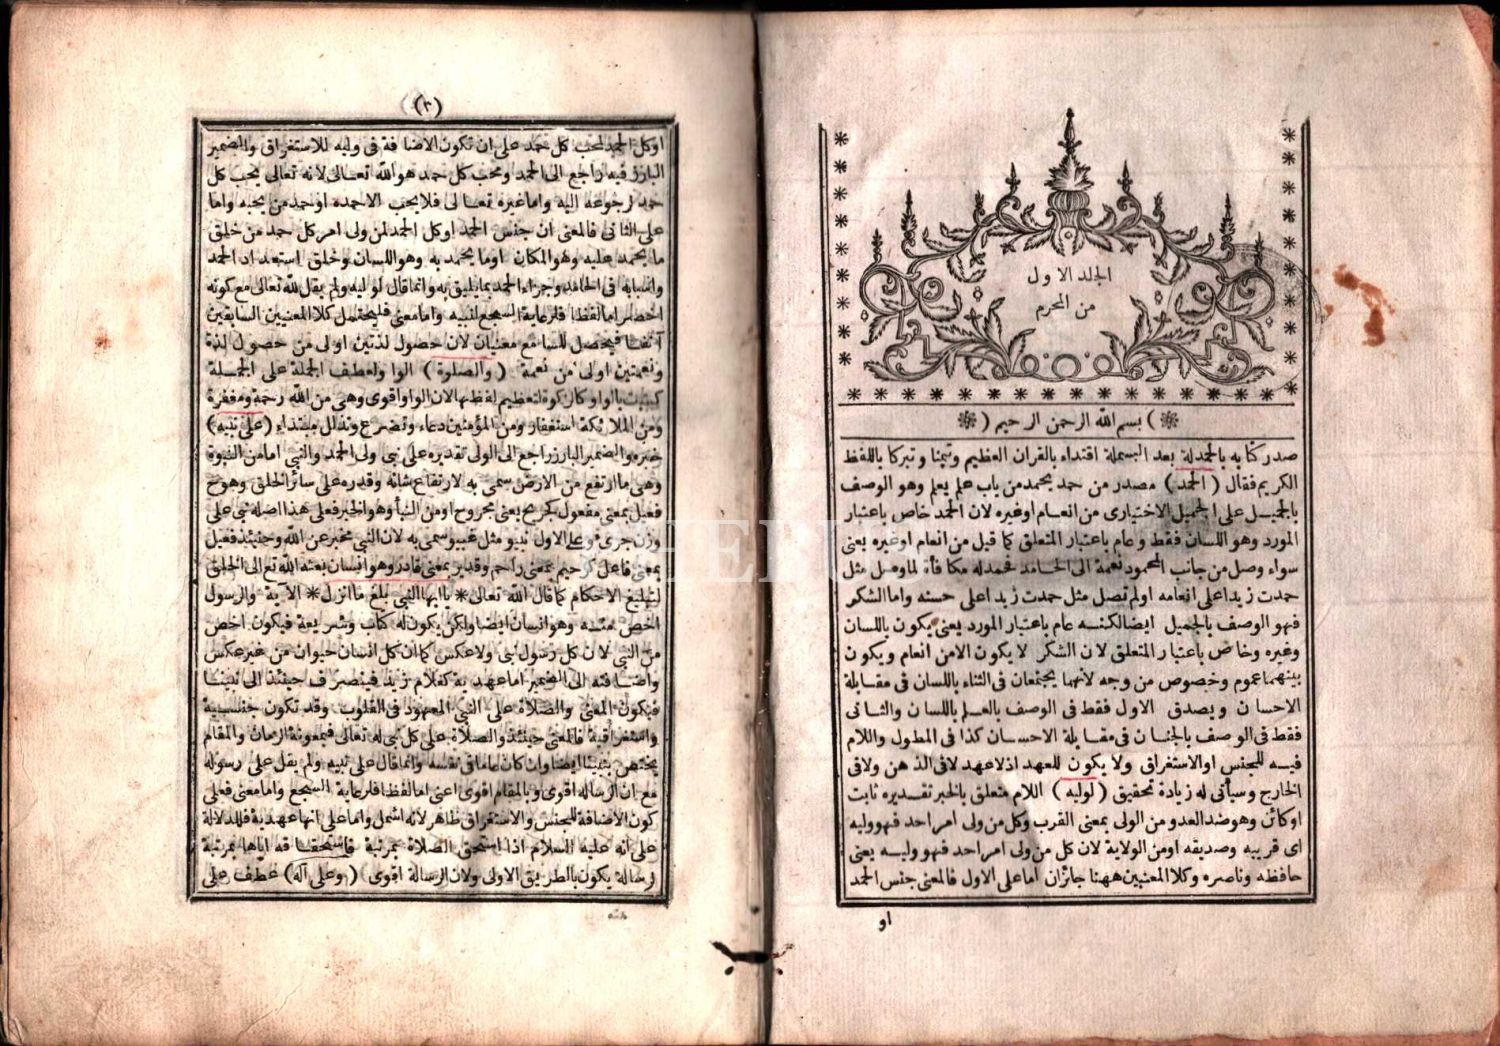 الجلد الاول
من المحرم
بسم الله الرحمن الرحيم
صدر كتابه بالحمدلة بعد البسملة اقتداء بالقران العظيم وتيمنا وتبركا باللفظ
الكريم فقال ( الحمد ) مصدر من حمد يحمد من باب علم يعلم وهو الوصف
بالجميل على الجميل الاختيارى من انعام اوغيره لان الحمد خاص باعتبار
المورد وهو اللسان فقط وعام باعتبار المتعلق كما قيل من انعام اوغيره يعنى
سواء وصل من جانب المحمود نعمة الى الحامد فحمدله مكافأة لما وصل مثل
حمدت زيدا على انعامه اولم تصل مثل حمدت زيدا على حسنه واما الشكر
فهو الوصف بالجميل ايضا لكنه عام باعتبار المورد يعنى يكون باللسان
وغيره وخاص باعتبار المتعلق لان الشكر لا يكون الامن انعام ويكون
بينهما عموم وخصوص من وجه لانهما يجتمعان فى الثناء باللسان فى مقابلة
الاحسان ويصدق الاول فقط فى الوصف بالعلم باللسان والثانى
فقط فى الوصف بالجنان فى مقابلة الاحسان كذا فى المطول واللام
فيه للجنس اوالاستغراق ولا يكون للعهد اذلاعهد لافى الذهن ولافى
الخارج وسيأتى له زيادة تحقيق ( لوليه ) اللام متعلق بالخبر تقديره ثابت
اوكائن وهو ضد العدو من الولى بمعنى القرب وكل من ولى امر احد فهو وليه
اى قريبه وصديقه اومن الولاية لان كل من ولى امر احد فهو وليه يعنى
حافظه وناصره وكلا المعنيين ههنا جائزان اما على الاول فالمعنى جنس الحمد
او
(٢)
اوكل الحمد لمحب كل حمد على ان تكون الاضافة فى وليه للاستغراق والضمير
البارز فيه راجع الى الحمد ومحب كل حمد هو الله تعالى لانه تعالى يحب كل
حمد لرجوعه اليه واما غيره تعالى فلا يحب الاحمده اوحمد من يحبه واما
على الثانى فالمعنى ان جنس الحمد اوكل الحمد لمن ولى امر كل حمد من خلق
ما يحمد عليه وهو المكان اوما يحمد به وهو اللسان وخلق استعداد الحمد
واسبابه فى الحامد وجزاء الحمد بما يليق به وانما قال لوليه ولم يقل لله تعالى مع كونه
اخصر اما لفظا فلرعاية السجع لنبيه واما معنى فليحتمل كلا المعنيين السابقين
آنفا فيحصل للسامع معنيان لان حصول لذتين اولى من حصول لذة
ونعمتين اولى من نعمة ( والصلوة ) الواو لعطف الجملة على الجملة
كتبت بالواو كزكوة لتعظيم لفظها لان الواو اقوى وهى من الله رحمة ومغفرة
ومن الملائكة استغفار ومن المؤمنين دعاء وتضرع وتذلل مبتداء (على نبيه)
خبره والضمير البارز راجع الى الولى تقديره على نبى ولى الحمد والنبى اما من النبوة
وهى ما ارتفع من الارض سمى به لارتفاع شانه وقدره على سائر الخلق وهو ح
فعيل بمعنى مفعول كجريح بمعنى مجروح اومن النبأ وهو الخبر فعلى هذا اصله نبئ على
وزن جرئ وعلى الاول نبيو مثل غبيو وسمى به لان النبى مخبر عن الله وحينئذ فعيل
بمعنى فاعل كرحيم بمعنى راحم وقدير بمعنى قادر وهو انسان بعثه الله تعالى الى الخلق
لتبليغ الاحكام كما قال الله تعالى * يا ايها النبى بلغ ما انزل * الآية والرسول
اخص منه وهو انسان ايضا ولكن يكون له كتاب وشريعة فيكون اخص
من النبى لان كل رسول نبى ولا عكس كما ان كل انسان حيوان من غير عكس
واضافته الى الضمير اما عهدية كغلام زيد فينصرف حينئذ الى نبينا
فيكون المعنى والصلاة على النبى المعهود فى القلوب وقد تكون جنسية
واستغراقية فالمعنى حينئذ والصلاة على كل نبى له تعالى فبمعونة الزمان والمقام
يختص بنبينا ايضا وان كان عاما فى نفسه وانما قال على نبيه ولم يقل على رسوله
مع ان الرسالة اقوى وبالمقام اقوى اعنى اما لفظا فلرعاية السجع واما معنى فعلى
كون الاضافة للجنس والاستغراق ظاهر لانه اشمل واما على انها عهدية فللدلالة
على انه عليه السلام اذا استحق الصلاة بمرتبة فاستحقاقه اياها بمرتبة
رسالة يكون بالطريق الاولى ولان الرسالة اقوى ( وعلى آله ) عطف على